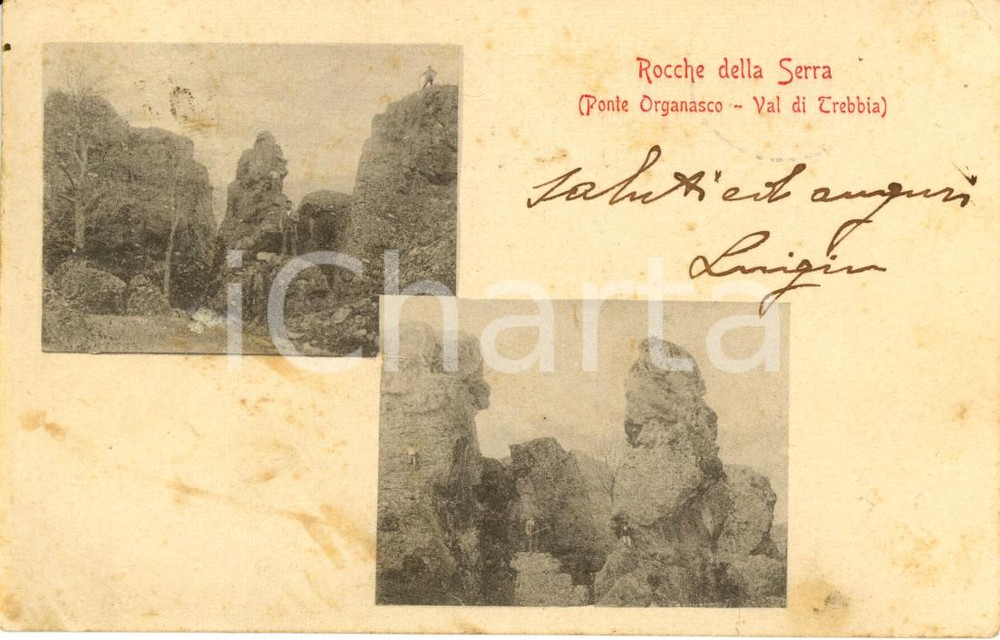 Rocche della Serra
(Ponte Organasco - Val di Trebbia)
saluti ed auguri
Luigin
iCharta